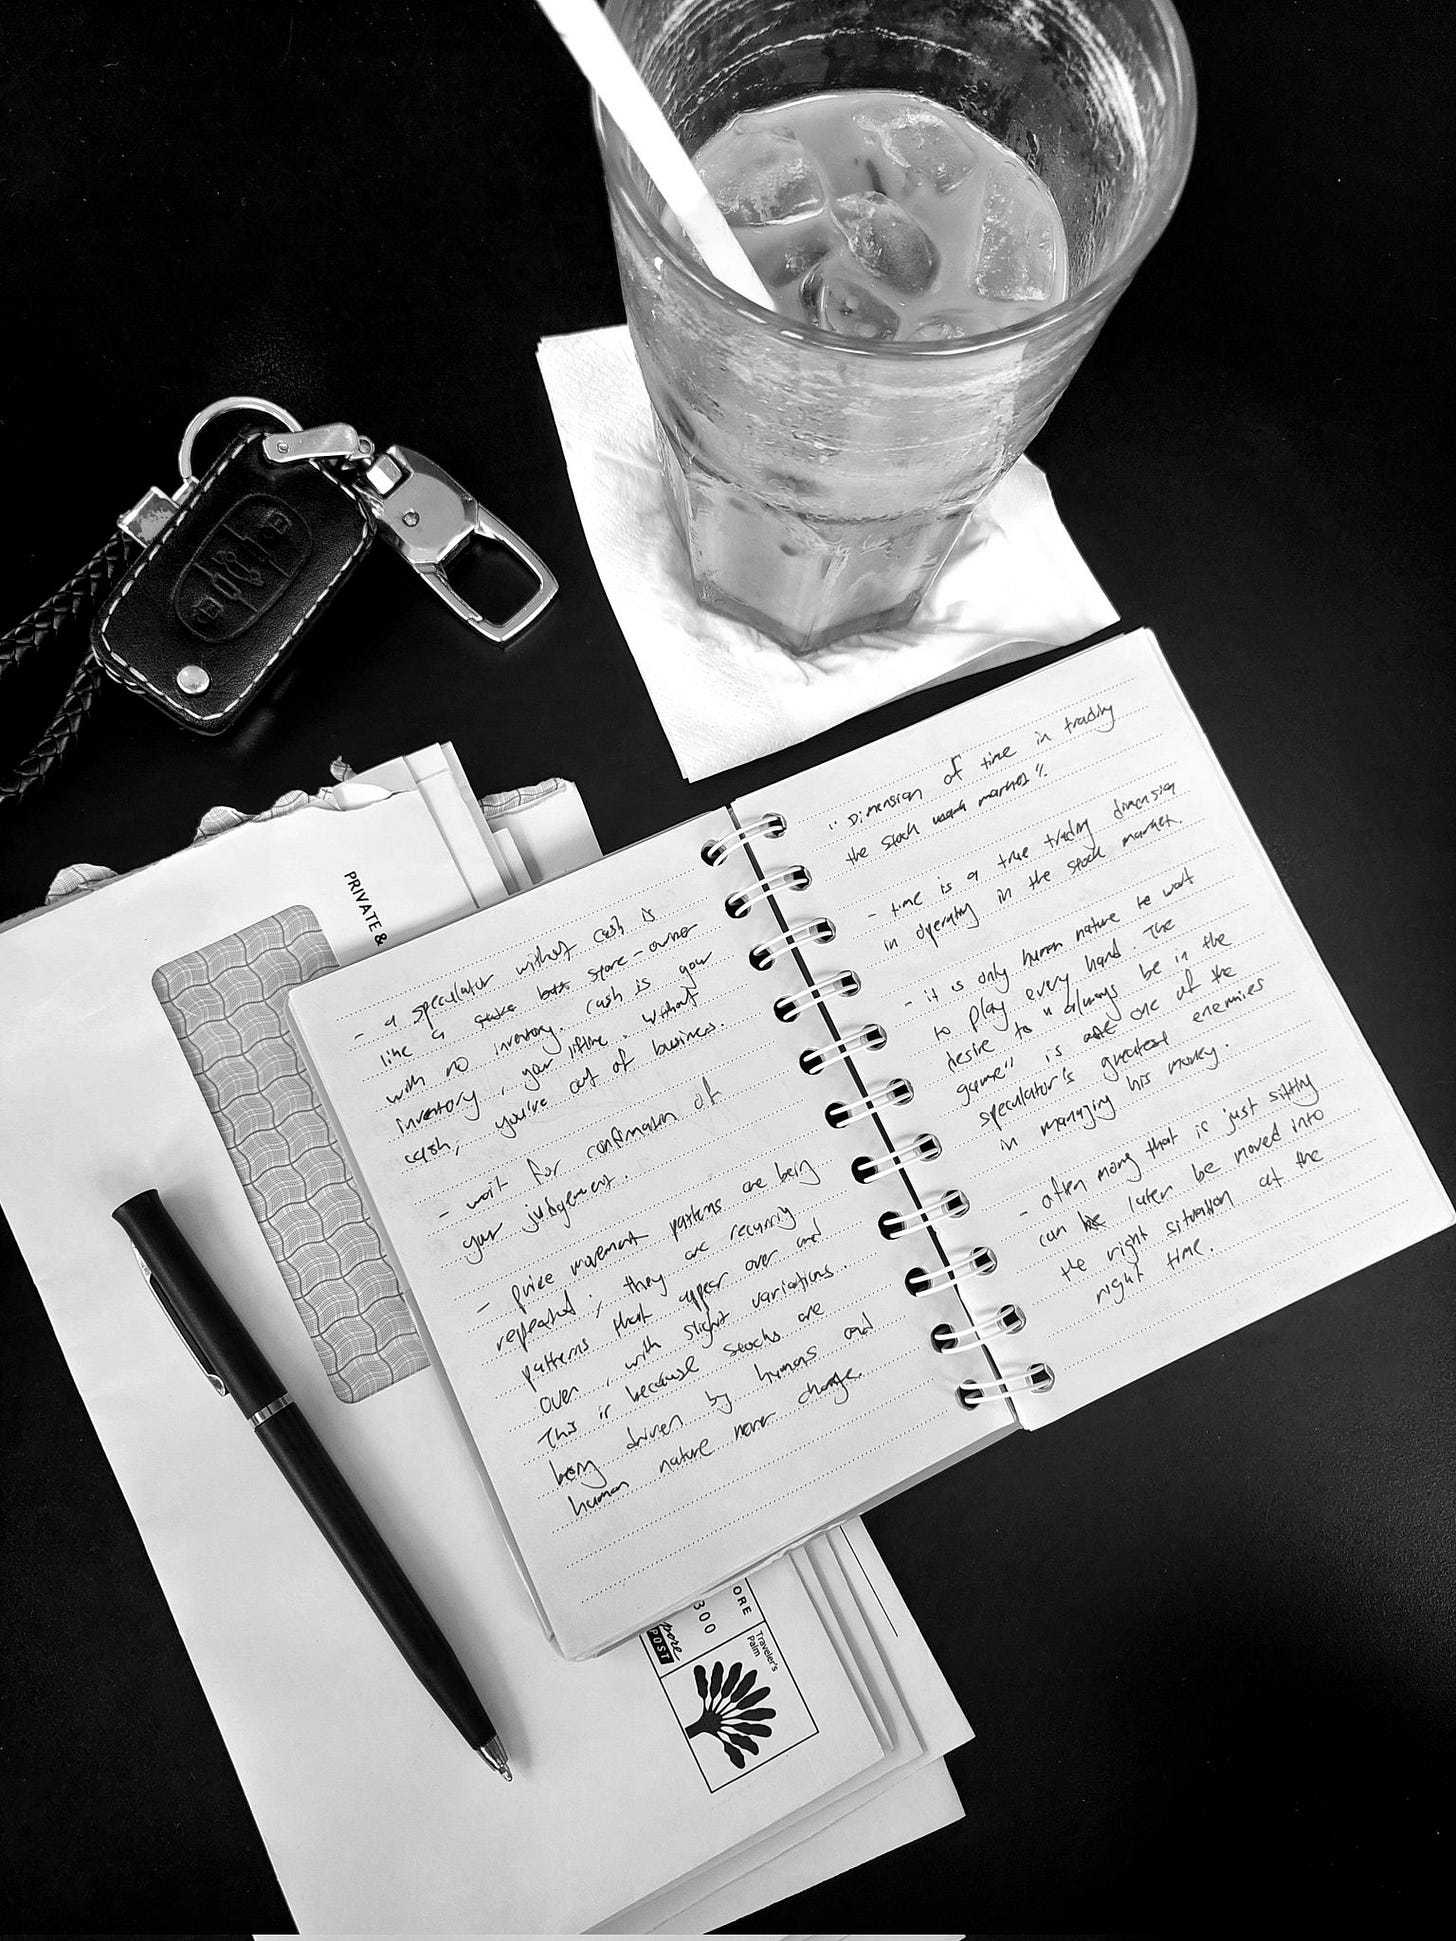 PRIVATE &
- a speculator without cash is
like a store-owner
with no inventory. cash is your
inventory, your lifline. without
cash, you're out of business.
- wait for confirmation of
your judgement.
- price movement patterns are being
repeated, they are recurring
patterns that appear over and
over, with slight variations.
This is because stocks are
being driven by humans and
human nature never change.
" Dimension of time in trading
the stock market ".
- time is a true trading dimension
in operating in the stock market.
- it is only human nature to want
to play every hand. The
desire to " always be in the
game" is one of the
speculator's greatest enemies
in managing his money.
- often money that is just sitting
can later be moved into
the right situation at the
right time.
ORE
300
pore
POST
Traveler's
Palm